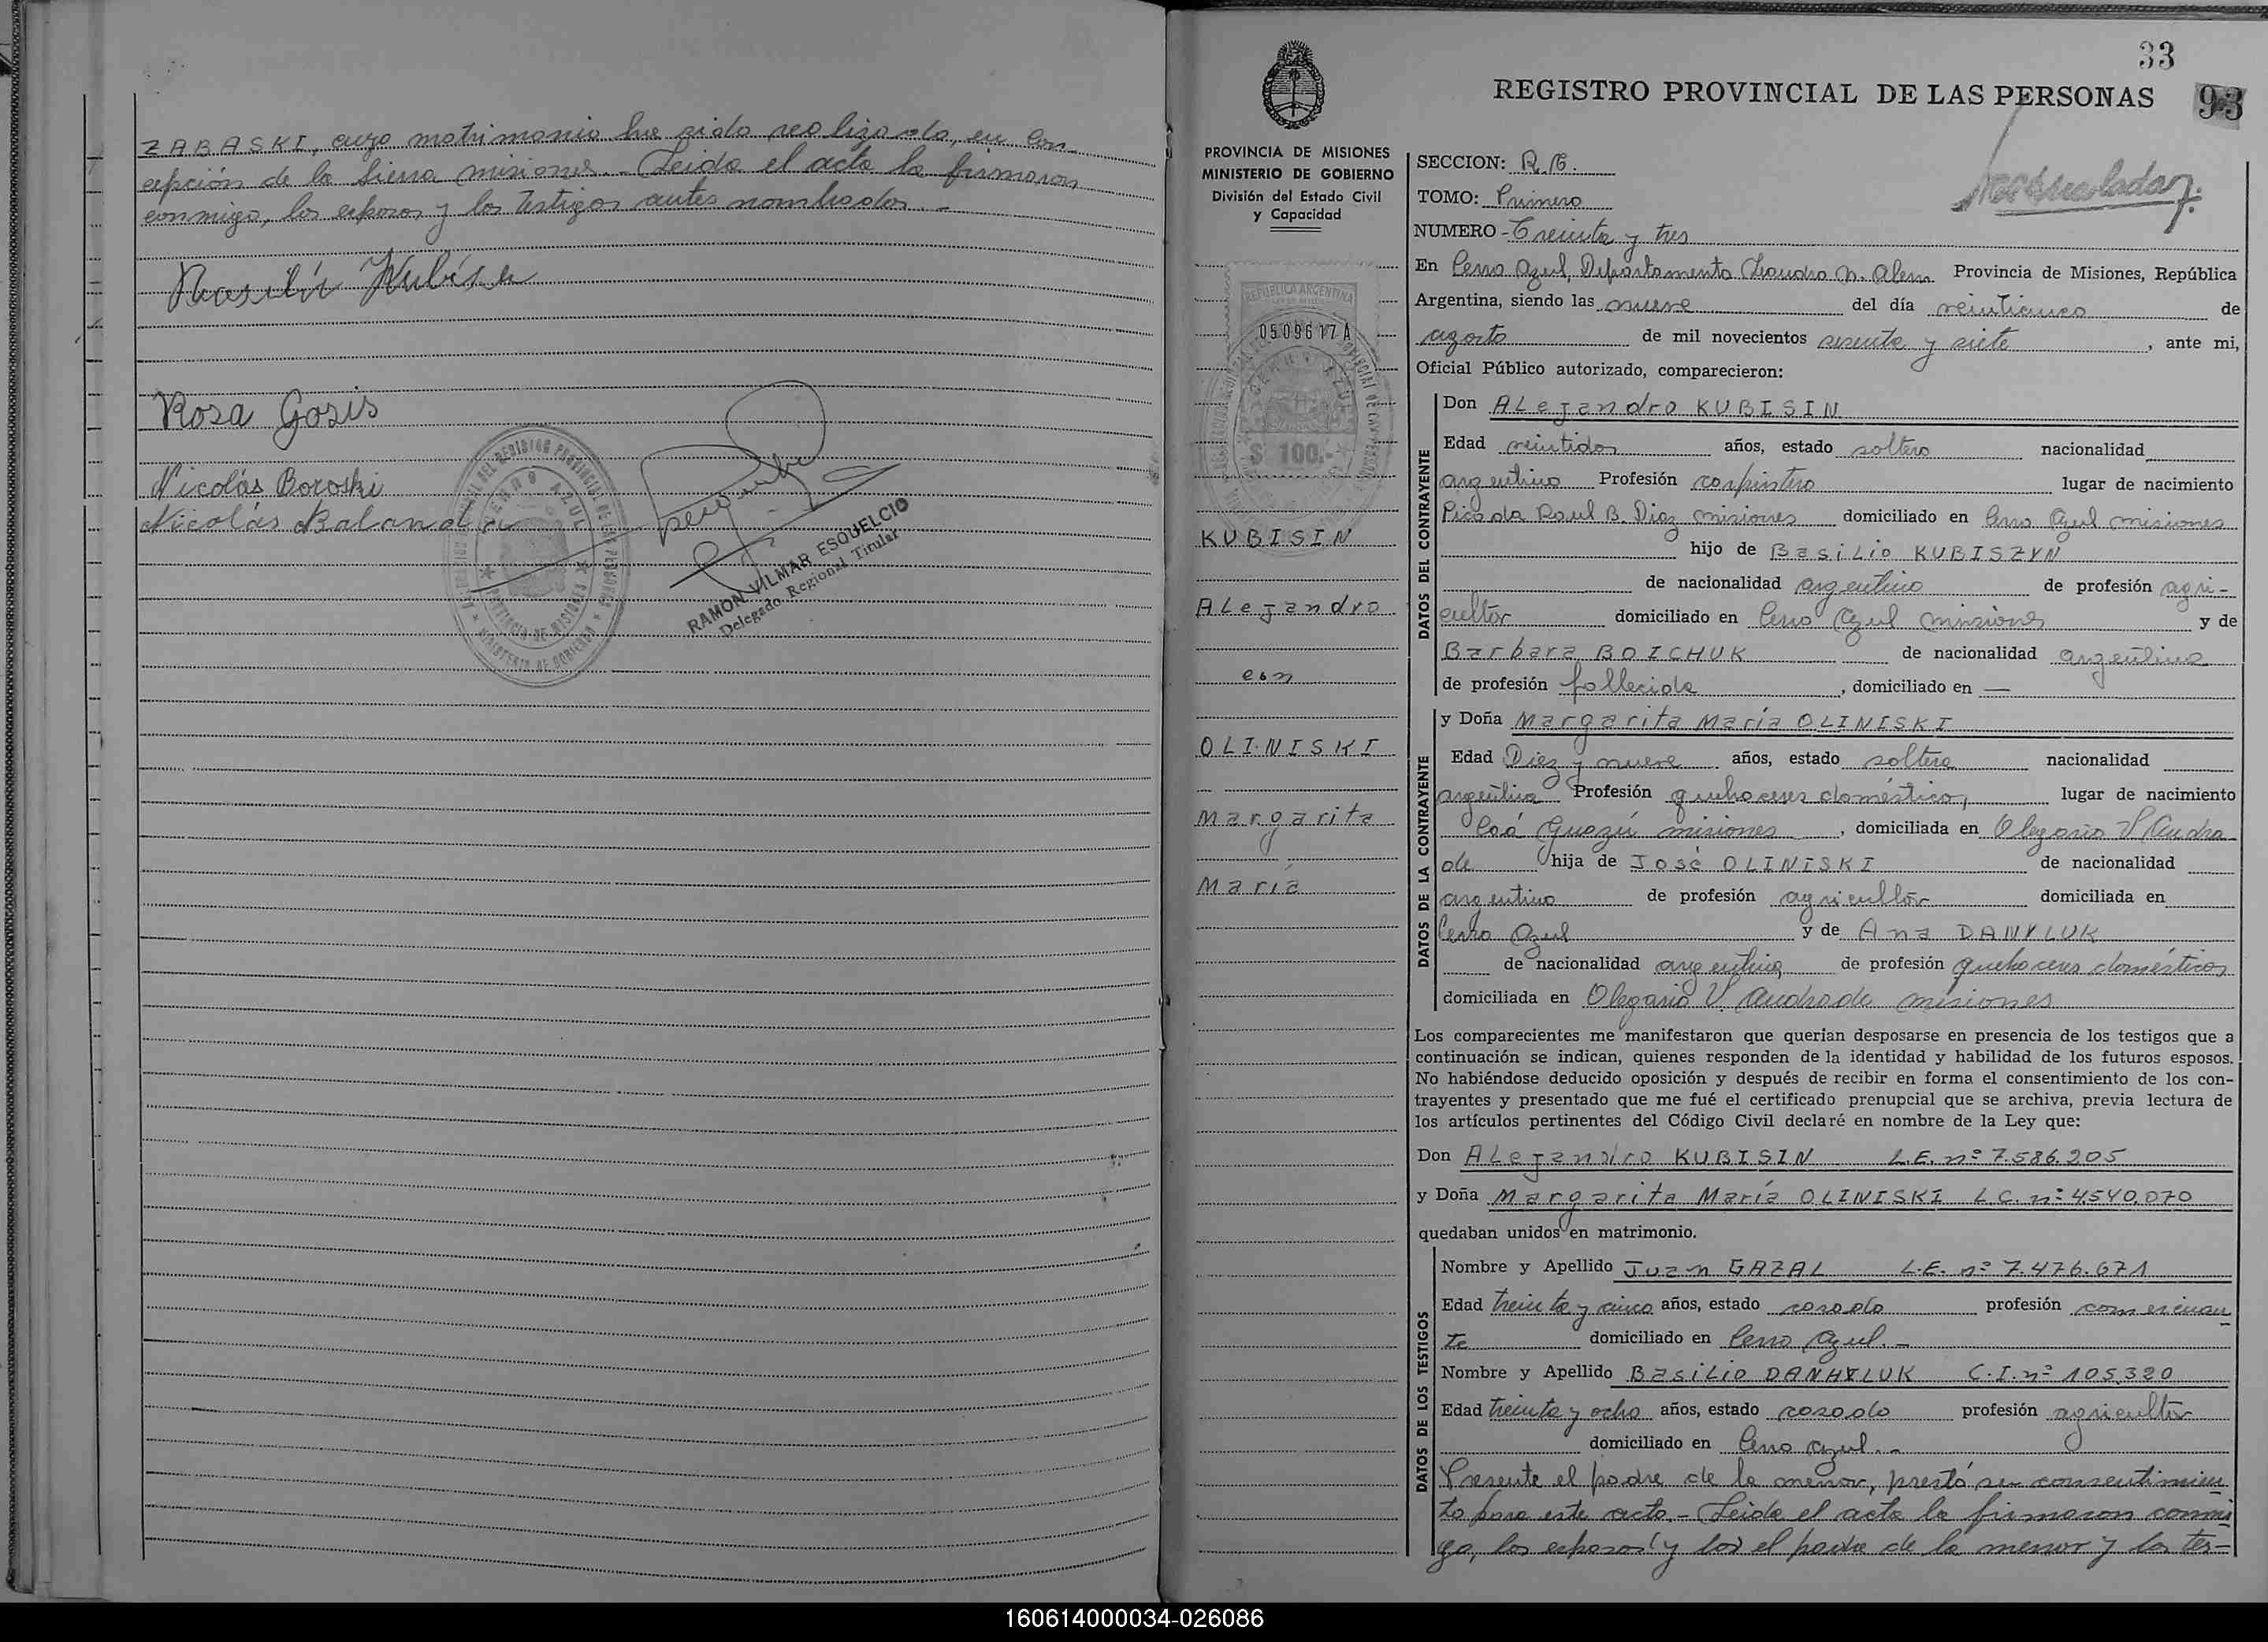 ZABASKI, cuyo matrimonio fue sido realizado, en Con-
cepción de la Sierra misiones.- Leida el acta la firmaron
conmigo, los esposos y los testigos antes nombrados.-
Rosa Gosis
Nicolás Boroski
Nicolás Balanda
RAMON VILMAR ESQUELCIO
Delegado Regional Titular
33
REGISTRO PROVINCIAL DE LAS PERSONAS
93
PROVINCIA DE MISIONES
MINISTERIO DE GOBIERNO
División del Estado Civil
y Capacidad
REPUBLICA ARGENTINA
0509617A
$ 100.-
KUBISIN
Alejandro
con
OLINISKI
Margarita
María
SECCION: R.C.
TOMO: Primero
NUMERO - Treinta y tres
En Cerro Azul, Departamento Leandro N. Alem Provincia de Misiones, República
Argentina, siendo las nueve del día veinticinco de
agosto de mil novecientos sesenta y siete, ante mi,
Oficial Público autorizado, comparecieron:
DATOS DEL CONTRAYENTE
Don Alejandro KUBISIN
Edad veintidos años, estado soltero nacionalidad
argentino Profesión carpintero lugar de nacimiento
Picada Raul B. Diaz misiones domiciliado en Cerro Azul misiones
hijo de Basilio KUBISZYN
de nacionalidad argentino de profesión agri-
cultor domiciliado en Cerro Azul misiones y de
Barbara BOICHUK de nacionalidad argentina
de profesión fallecida, domiciliado en —
DATOS DE LA CONTRAYENTE
y Doña Margarita María OLINISKI
Edad Diez y nueve años, estado soltera nacionalidad
argentina Profesión quehaceres domésticos, lugar de nacimiento
Caá Guazú misiones, domiciliada en Olegario V Andra
de hija de José OLINISKI de nacionalidad
argentino de profesión agricultor domiciliada en
Cerro Azul y de Ana DANYLUK
de nacionalidad argentina de profesión quehaceres domésticos
domiciliada en Olegario V. Andrade misiones
Los comparecientes me manifestaron que querían desposarse en presencia de los testigos que a
continuación se indican, quienes responden de la identidad y habilidad de los futuros esposos.
No habiéndose deducido oposición y después de recibir en forma el consentimiento de los con-
trayentes y presentado que me fué el certificado prenupcial que se archiva, previa lectura de
los artículos pertinentes del Código Civil declaré en nombre de la Ley que:
Don Alejandro KUBISIN L.E. nº 7.586.205
y Doña Margarita María OLINISKI L.C. nº 4.540.070
quedaban unidos en matrimonio.
DATOS DE LOS TESTIGOS
Nombre y Apellido Juan GAZAL L.E. nº 7.476.671
Edad treinta y cinco años, estado casado profesión comercian
te domiciliado en Cerro Azul.-
Nombre y Apellido Basilio DANHYLUK C.I. nº 105.320
Edad treinta y ocho años, estado casado profesión agricultor
domiciliado en Cerro Azul.-
Presente el padre de la menor, prestó su consentimien
to para este acto.- Leida el acta la firmaron conmi
go, los esposos (y los) el padre de la menor y los tes-
160614000034-026086